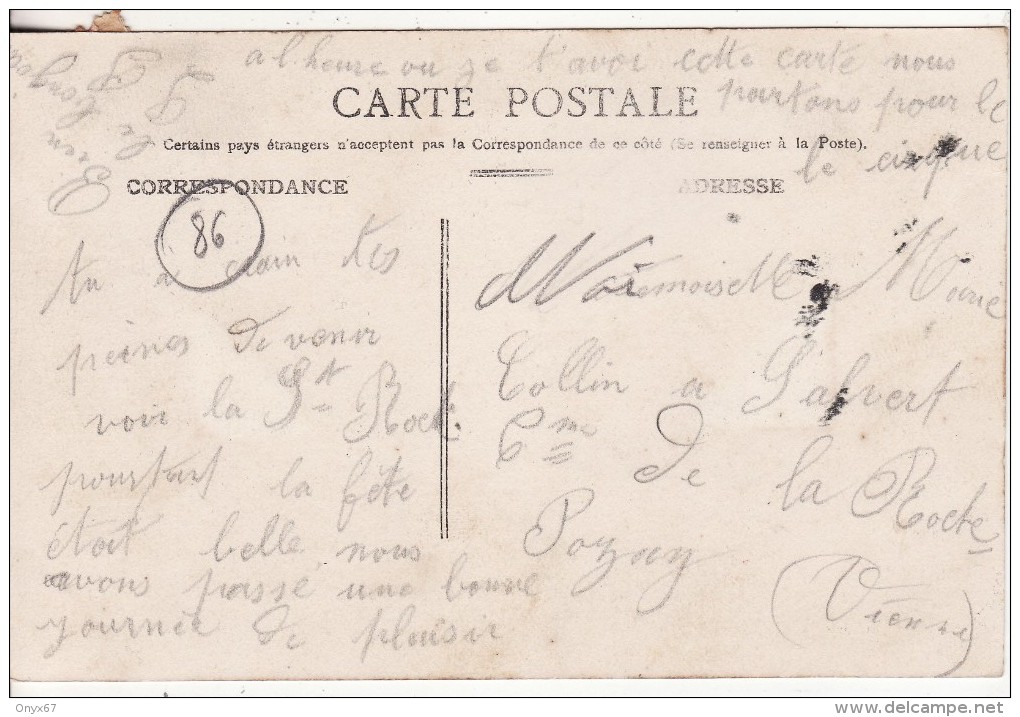 a l'heure ou je t'avoi cette carte nous
partons pour le
le cirque
CARTE POSTALE
Certains pays étrangers n'acceptent pas la Correspondance de ce côté (Se renseigner à la Poste).
CORRESPONDANCE
ADRESSE
86
tu a crain tes
peines de venir
voir la St Roch
pourtant la fête
était belle nous
avons passé une bonne
journée de plaisir
Marie
Collin a Salvert
Cne de la Roche
Pozay
(Vienne)
Onyx67
www.delcampe.net